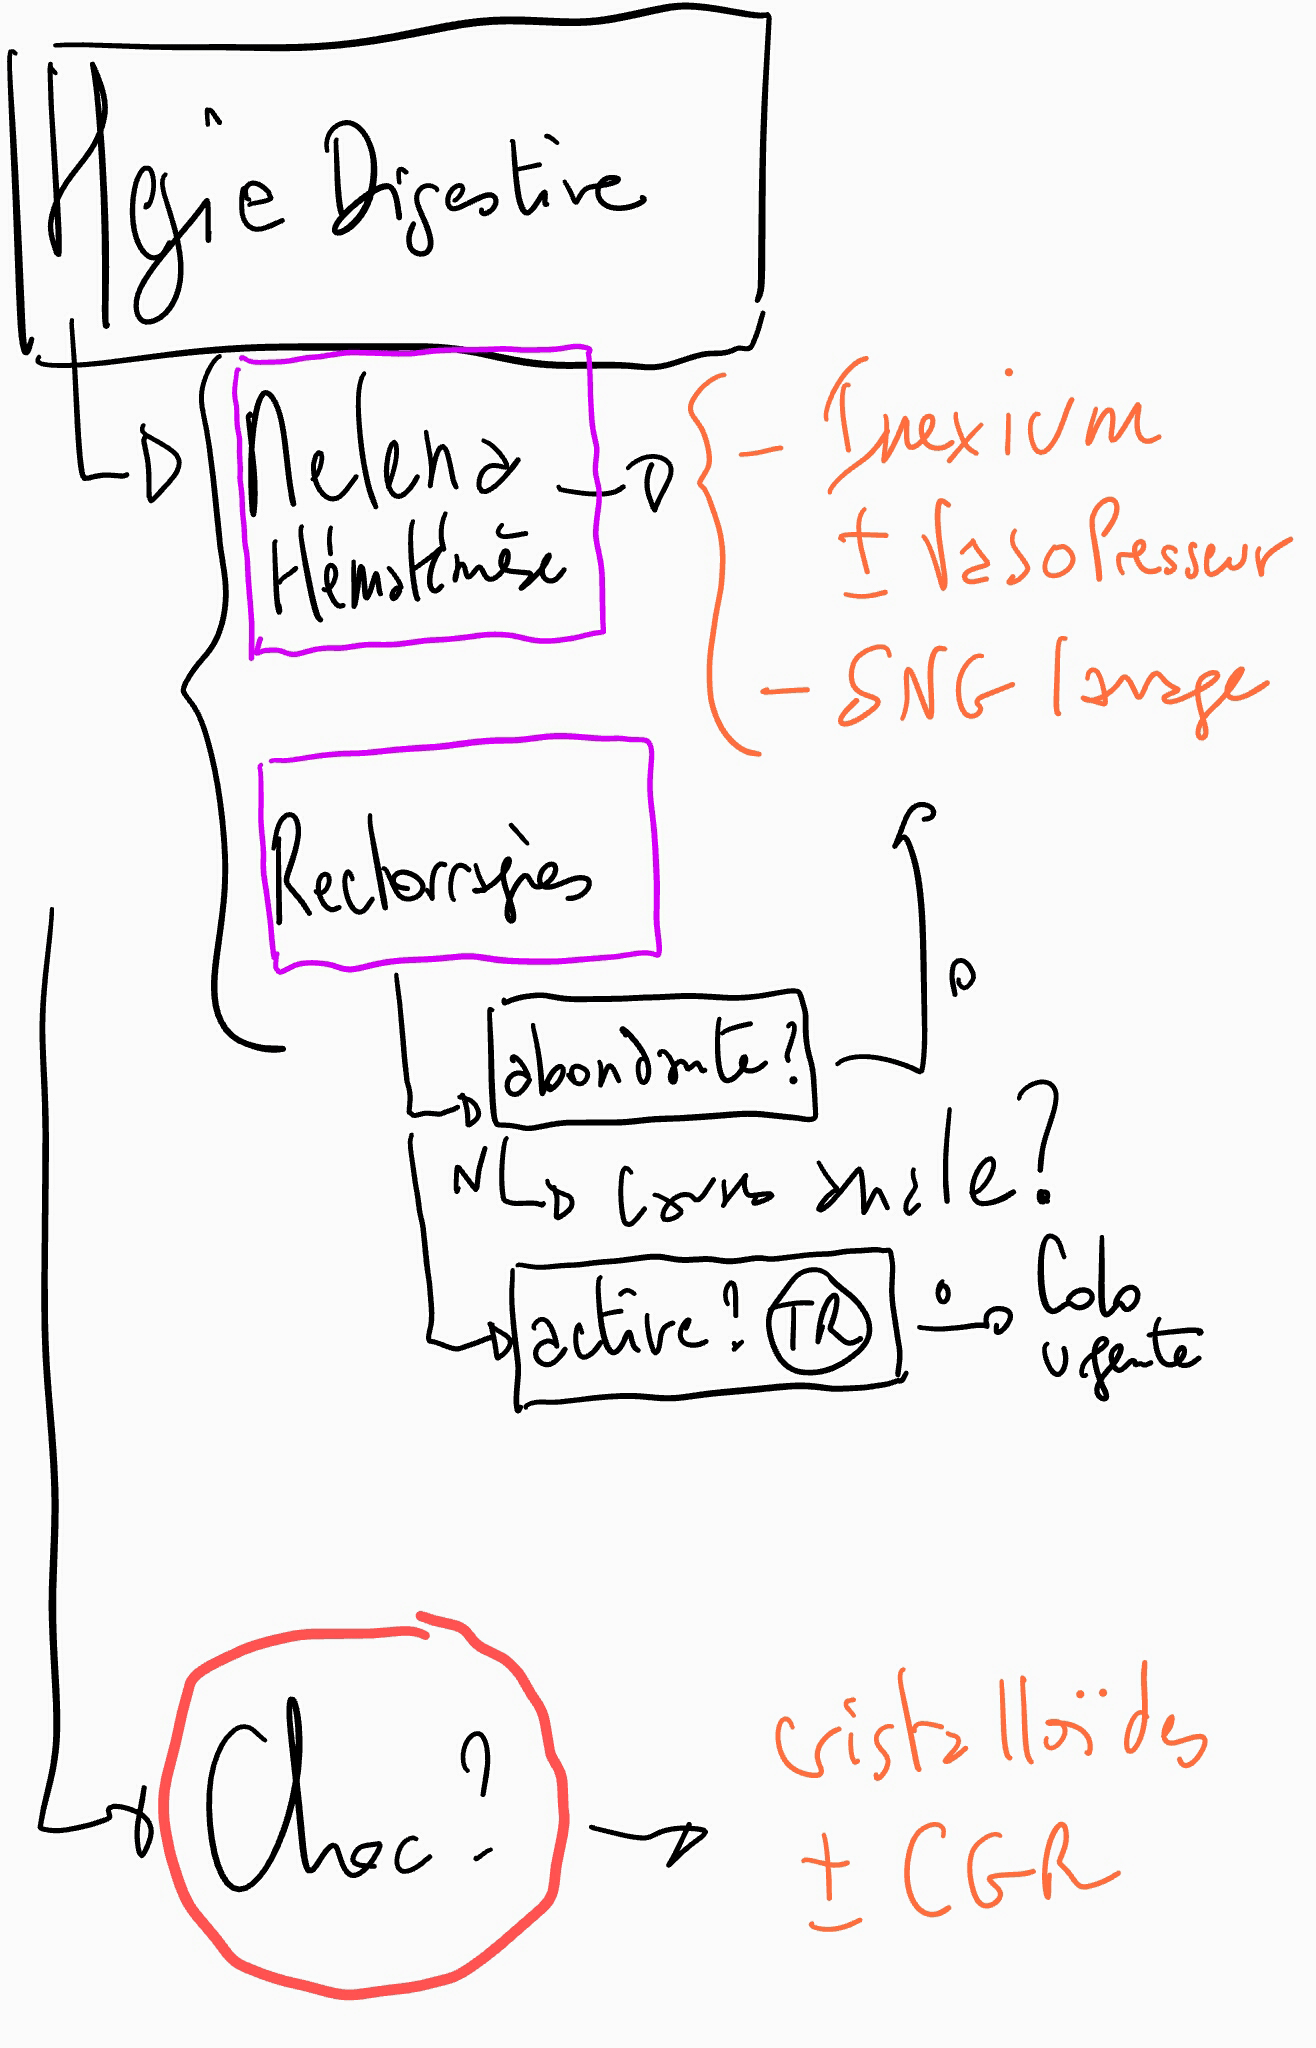 Hgie Digestive
Melena
Hématémèse
- Inexium
± VasoPresseur
- SNG lavage
Rectorragies
abondante?
O
N
cause anale?
active? TR
O
Colo
urgente
Choc?
cristalloïdes
± CGR